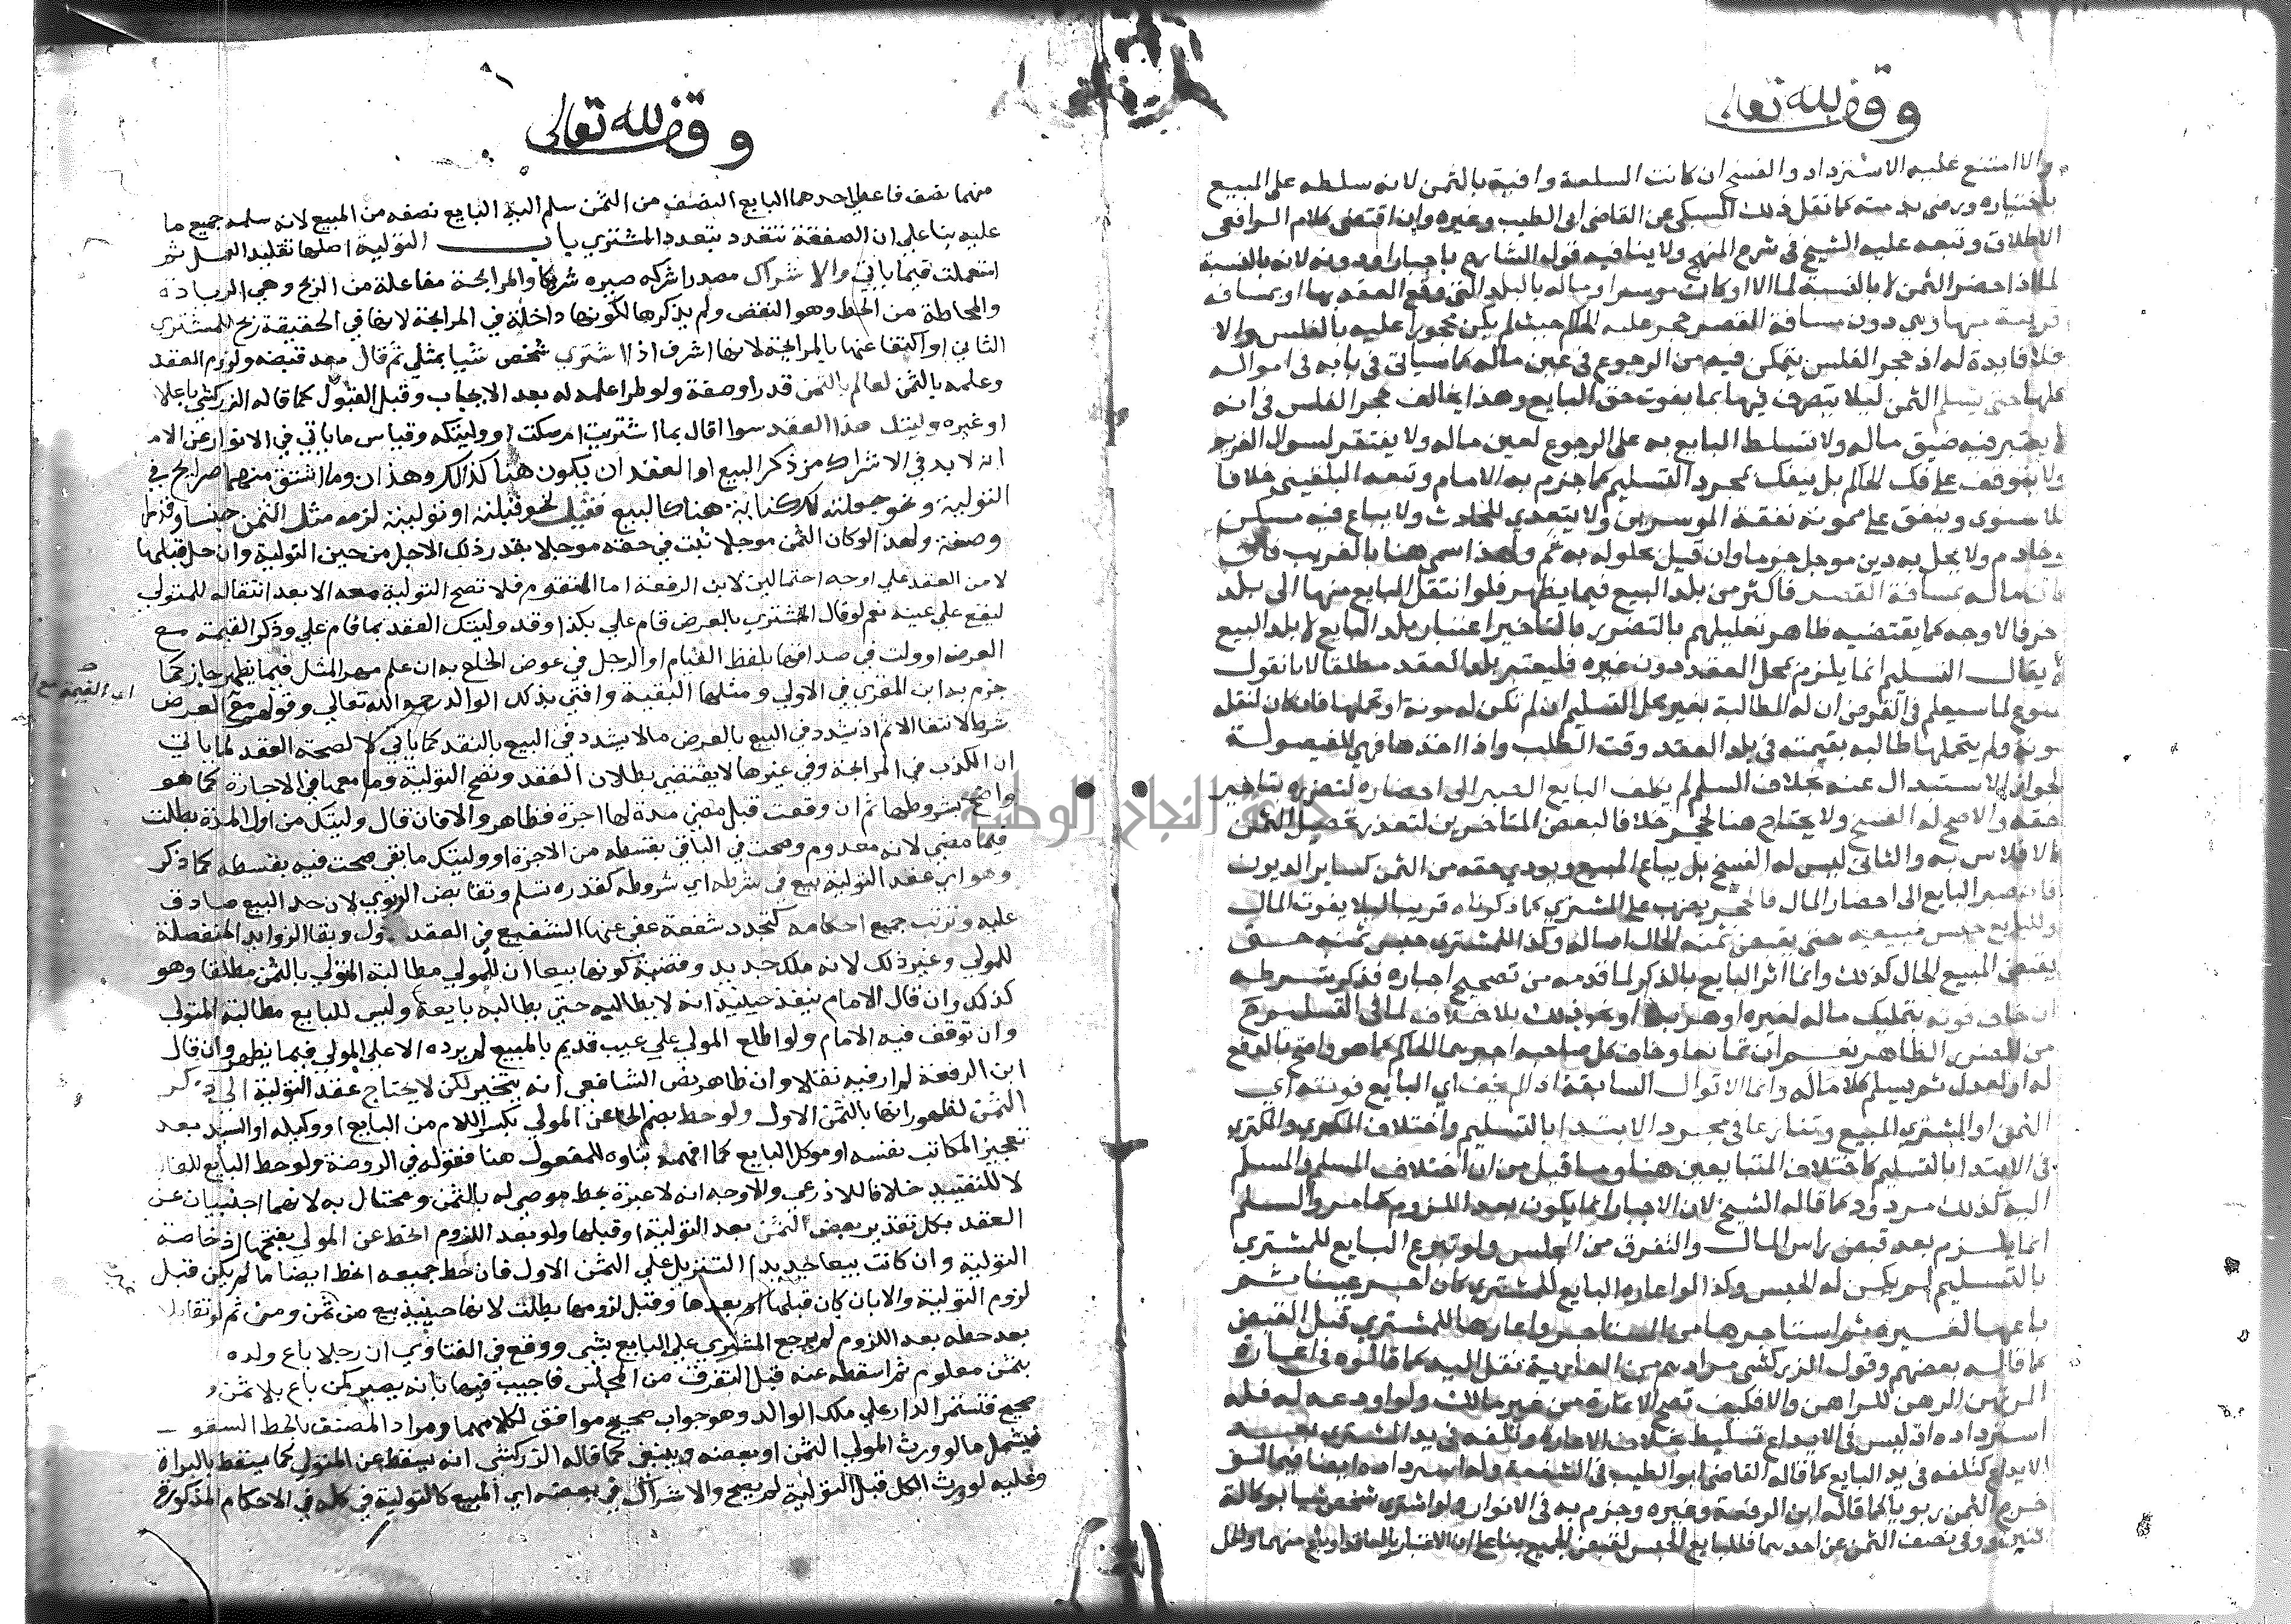 وقف لله تعالى
والا امتنع عليه الاسترداد والفسخ ان كانت السلعة وافية بالثمن لانه سلطه على المبيع
باختياره ورضى بذمته كما نقل ذلك السبكى عن القاضى ابى الطيب وغيره وان اقتضى كلام الرافعى
الاطلاق وتبعه عليه الشيخ فى شرح المنهج ولا ينافيه قوله الشارح باجبار او دونه لانه بالنسبة
لما اذا حضر الثمن لا بالنسبة لما الا او كان موسرا وماله بالبلد التى وقع العقد بها او بمسافة
قريبة منها وهى دون مسافة القصر حجر عليه الحاكم حيث لم يكن محجورا عليه بالفلس والا
فلا فايدة له اذ حجر الفلس يتمكن فيه من الرجوع فى عين ماله كما سياتى فى بابه فى امواله
كلها حتى يسلم الثمن ليلا يتصرف فيها بما يفوت حق البايع وهذا يخالف حجر الفلس فى انه
لا يعتبر فيه ضيق ماله ولا تسلط البايع به على الرجوع لعين ماله ولا يفتقر لسوال الغريم
ولا يتوقف على فك الحاكم بل ينفك بمجرد التسليم كما جزم به الامام وتبعه البلقينى خلافا
للاسنوى وينفق على ممونه نفقة الموسرين ولا يتعدى للحادث ولا يباع فيه مسكن
وخادم ولا يحل به دين موجل جزما وان قيل بحلوله به ثم ولهذا سمى هنا بالغريب فان
كان ماله بمسافة القصر فاكثر من بلد البيع فيما يظهر فلو انتقل البايع منها الى بلد
اخر فالاوجه كما يقتضيه ظاهر تعليلهم بالتضرر بالتاخير اعتبار بلد البايع لا بلد البيع
لا يقال التسليم انما يلزم بمحل العقد دون غيره فليعتبر بلد العقد مطلقا لانا نقول
ممنوع لما سيعلم فى القرض ان له المطالبة بغير محل التسليم ان لم تكن له مونة او تحملها فان كان لنقله
مونة ولم يتحملها طالبه بقيمته فى بلد العقد وقت الطلب واذا اخذها فهى للفيصولة
لجواز الاستبدال عنه بخلاف السلم لم يكلف البايع الصبر الى احضاره لتضرره بتاخير
حقه والاصح ان له الفسخ ولا يحتاج هنا لحجر خلافا لبعض المتاخرين لتعذر تحصيل الثمن
كالافلاس به والثانى ليس له الفسخ بل يباع المبيع ويودى حقه من الثمن كساير الديون
فان صبر البايع الى احضار المال فالحجر يضرب على المشترى كما ذكرناه قريبا ليلا يفوت المال
وللبايع حبس مبيعه حتى يقبض ثمنه الحال اصالة وكذا للمشترى حبس ثمنه حتى
يقبض المبيع الحال كذلك وانما اثر البايع بالذكر لما قدمه من تصحيح اجباره فذكر شرطه
ان خاف فوته بتمليك ماله لغيره او هربه او نحو ذلك بلا خلاف لما فى التسليم
من الضرر الظاهر نعم ان تمانعا وخاف كل صاحبه اجبرهما الحاكم كما هو واضح بالدفع
له او لعدل ثم يسلم كلا ماله وانما الاقوال السابقة اذا لم يخف اى البايع فوته اى
الثمن او المشترى المبيع وتنازعا فى مجرد الابتدا بالتسليم واختلاف المكرى والمكترى
فى الابتدا بالتسليم كاختلاف المتبايعين هنا وما قيل من ان اختلاف المسلم والمسلم
اليه كذلك مردود كما قاله الشيخ لان الاجبار انما يكون بعد اللزوم كما مر والسلم
انما يلزم بعد قبض راس المال والتفرق من المجلس ولو تبرع البايع للمشترى
بالتسليم لم يكن له الحبس وكذا لو اعاره البايع للمشترى كان اجر عينا ثم
باعها لغيره ثم استاجرها من المستاجر واعارها للمشترى قبل القبض
كما قاله بعضهم وقول الزركشى مرادهم من العارية نقل اليد كما قالوه فى اعارة
المرتهن الرهن للراهن والا فكيف تصح الاعارة من غير مالك ولو اودعه له فله
استرداده اذ ليس فى الايداع تسليط بخلاف الاعارة وتلفه فى يد المشترى بعد
الايداع كتلفه فى يد البايع كما قاله القاضى ابو الطيب فى الشفعة وله استرداده ايضا فيما لو
خرج الثمن ربويا كما قاله ابن الرفعة وغيره وجزم به فى الانوار ولو اشترى شخص شيا بوكالة
اثنين ووفى نصف الثمن عن احدهما فللبايع الحبس لقبض الجميع بنا على ان الاعتبار بالعاقد او باع منهما ولكل
وقف لله تعالى
منهما نصف فاعطى احدهما البايع النصف من الثمن سلم اليه البايع نصفه من المبيع لانه سلمه جميع ما
عليه بنا على ان الصفقة تتعدد بتعدد المشتري باب التولية اصلها تقليد العمل ثم
استعملت فيما ياتي والاشراك مصدر اشركه صيره شريكا والمرابحة مفاعلة من الربح وهي الزيادة
والمحاطة من الحط وهو النقص ولم يذكرها لكونها داخلة في المرابحة لانها في الحقيقة ربح للمشتري
الثاني او اكتفا عنها بالمرابحة لانها اشرف اذا اشتري شخص شيا بمثلي ثم قال بعد قبضه ولزوم العقد
وعلمه بالثمن لعالم بالثمن قدرا وصفة ولو طرا علمه له بعد الايجاب وقبل القبول كما قاله الزركشي باعلامه
او غيره وليتك هذا العقد سوا اقال بما اشتريت ام سكت او وليتكه وقياس ما ياتي في الانوار عن الامام
انه لا بد في الاشراك من ذكر البيع او العقد ان يكون هنا كذلك وهذان وما اشتق منهما صرايح في
التولية ونحو جعلته لك كناية هنا كالبيع فقبل بنحو قبلته او توليته لزمه مثل الثمن جنسا وقدرا
وصفة ولهذا لو كان الثمن موجلا ثبت في حقه موجلا بقدر ذلك الاجل من حين التولية وان حل قبلها
لا من العقد علي اوجه احتمالين لابن الرفعة اما المتقوم فلا تصح التولية معه الا بعد انتقاله للمتولي
ليقع علي عينه نعم لو قال المشتري بالعرض قام علي بكذا وقد وليتك العقد بما قام علي وذكر القيمة مع
العرض او ولت في صداقها بلفظ القيام او الرجل في عوض الخلع به ان علم مهر المثل فيما يظهر جاز كما
جزم به ابن المقري في الاولي ومثلها البقية وافتي بذلك الوالد رحمه الله تعالي وقولهم مع العرض
اي القيمة مع
شرط لانتفا الاثم اذ يشدد في البيع بالعرض ما لا يشدد في البيع بالنقد كما ياتي لا لصحة العقد لما ياتي
ان الكذب في المرابحة وفي غيرها لا يقتضي بطلان العقد وتصح التولية وما معها في الاجارة كما هو
واضح بشروطها ثم ان وقعت قبل مضي مدة لها اجرة فظاهر والا فان قال وليتك من اول المدة بطلت
فيما مضي لانه معدوم وصحت في الباقي بقسطه من الاجرة او وليتك ما بقي صحت فيه بقسطه كما ذكر
وهو اي عقد التولية بيع في شرطه اي شروطه كقدرة تسلم وتقابض الربوي لان حد البيع صادق
عليه وترتب جميع احكامه كتجدد شفعة عفي عنها الشفيع في العقد الاول وبقا الزوايد المنفصلة
للمولي وغير ذلك لانه ملك جديد وقضية كونها بيعا ان للمولي مطالبة المتولي بالثمن مطلقا وهو
كذلك وان قال الامام ينقدح حينئذ انه لا يطالبه حتي يطالبه بايعه وليس للبايع مطالبة المتولي
وان توقف فيه الامام ولو اطلع المولي علي عيب قديم بالمبيع لم يرده الا علي المولي فيما يظهر وان قال
ابن الرفعة لم ار فيه نقلا وان ظاهر نص الشافعي انه يتخير لكن لا يحتاج عقد التولية الي ذكر
الثمن لظهور انها بالثمن الاول ولو حط بضم الحا عن المولي بكسر اللام من البايع او وكيله او السيد بعد
تعجيز المكاتب نفسه او موكل البايع كما افهمه بناوه للمفعول هنا فقوله في الروضة ولو حط البايع للغالب
لا للتقييد خلافا للاذرعي والاوجه انه لا عبرة بحط موصي له بالثمن ومحتال به لانهما اجنبيان عن
العقد بكل تقدير بعض الثمن بعد التولية او قبلها ولو بعد اللزوم انحط عن المولي بفتحها اذ خاصة
التولية وان كانت بيعا جديدا التنزيل علي الثمن الاول فان حط جميعه انحط ايضا ما لم يكن قبل
لزوم التولية والا بان كان قبلها او بعدها وقبل لزومها بطلت لانها حينئذ بيع من غير ثمن ومن ثم لو تقايلا
بعد حطه بعد اللزوم لم يرجع المشتري علي البايع بشي ووقع في الفتاوي ان رجلا باع ولده
بثمن معلوم ثم اسقطه عنه قبل التفرق من المجلس فاجيب فيها بانه يصير كمن باع بلا ثمن و
صحيح فتستمر الدار علي ملك الوالد وهو جواب صحيح موافق لكلامهما ومراد المصنف بالحط السقوط
فيشمل ما لو ورث المولي الثمن او بعضه وينبغي كما قاله الزركشي انه يسقط عن المتولي كما يسقط بالبراة
وعليه لو ورث الكل قبل التولية لم يصح والاشراك في بعضه اي المبيع كالتولية في كله في الاحكام المذكورة
جامعة النجاح الوطنية